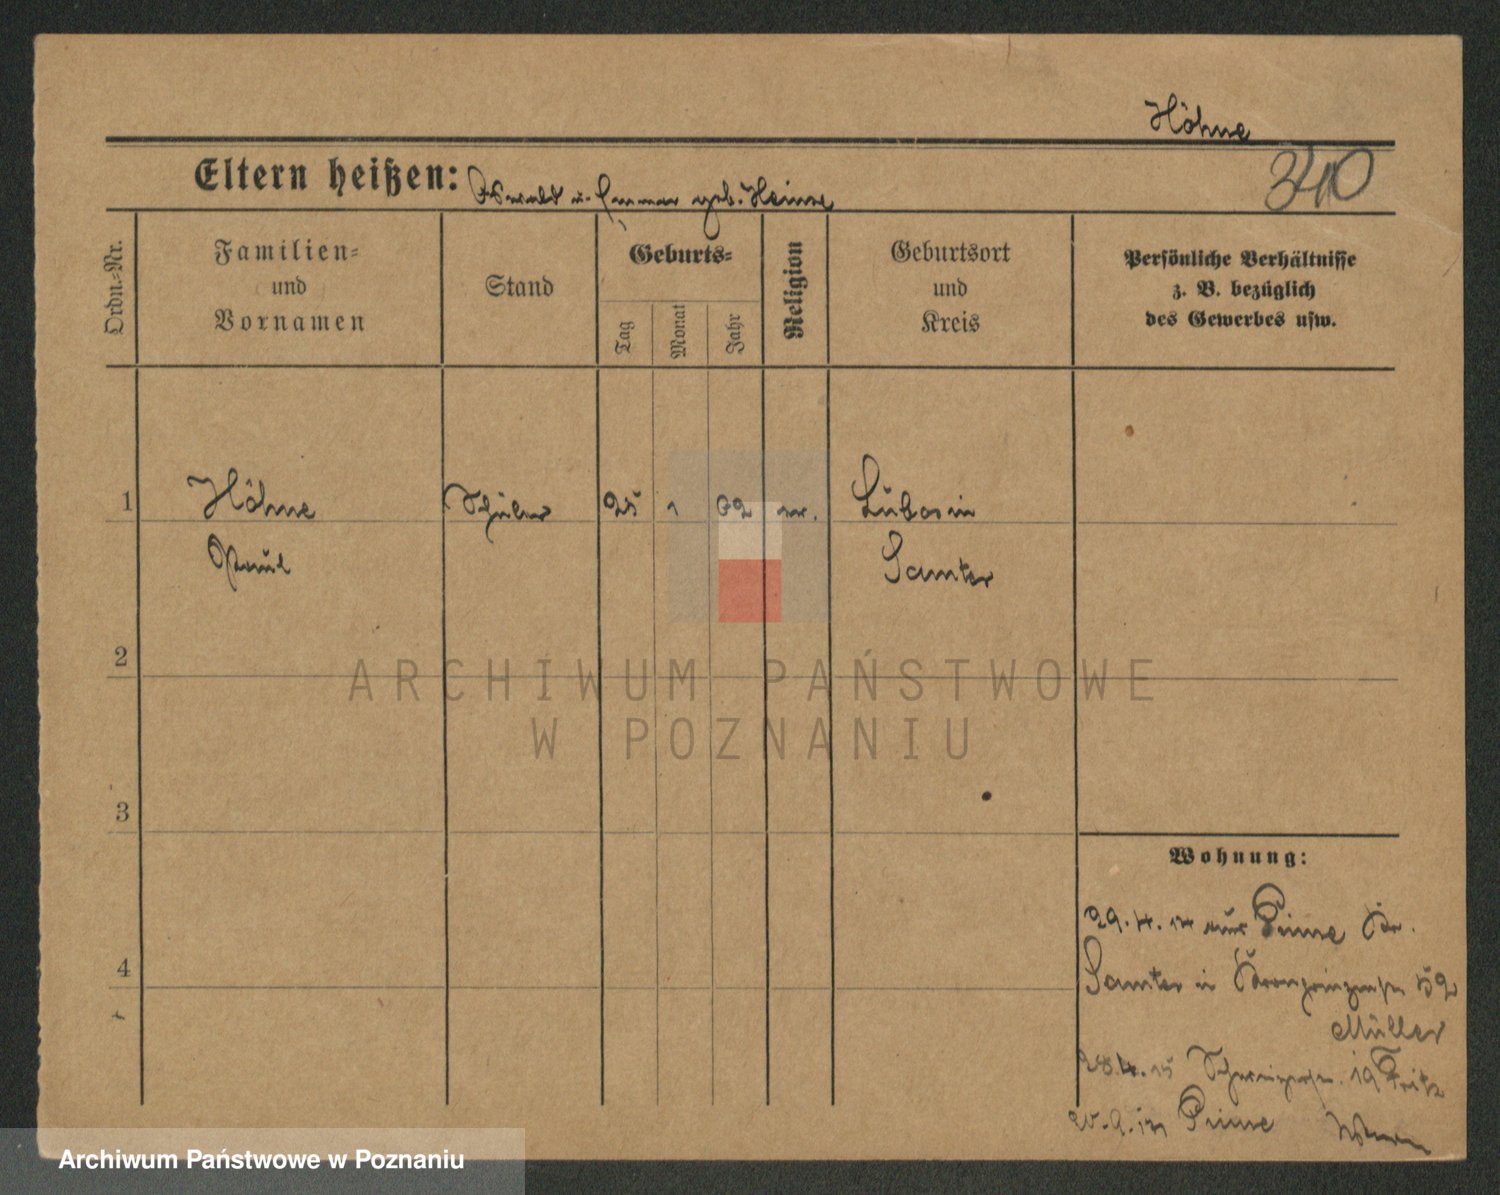 Höhne
340
Eltern heißen: Oswald u. Emma geb. Heinze
Ordn.=Nr.
Familien=
und
Vornamen
Stand
Geburts=
Tag
Monat
Jahr
Religion
Geburtsort
und
Kreis
Persönliche Verhältnisse
z. B. bezüglich
des Gewerbes usw.
1 Höhne Schüler 25 1 02 ev. Lubosin
Paul Samter
2
3
4
Wohnung:
29.4.14 aus Pinne Kr.
Samter in Kronprinzenstr 52
Müller
28.4.15 19 Fritz
Pinne
ARCHIWUM PAŃSTWOWE
W POZNANIU
Archiwum Państwowe w Poznaniu